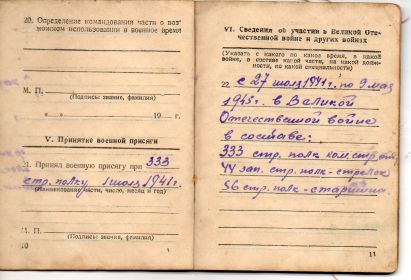 20. Определение командования части о воз-
можном использовании в военное время
М. П.
(Подпись: звание, фамилия)
«    »                19    г.
V. Принятие военной присяги
21. Принял военную присягу при 333
стр. полку 1 июля 1941 г.
(Наименование части, число, месяц и год)
М. П.
(Подпись: звание, фамилия)
10
VI. Сведения об участии в Великой Оте-
чественной войне и других войнах
(Указать с какого по какое время, в какой
войне, в составе какой части, на какой долж-
ности, по какой специальности)
22. с 27 июля 1941 г. по 9 мая
1945 г. в Великой
Отечественной войне
в составе:
333 стр. полк ком. стр. отд.
44 зап. стр. полк - стрелок
56 стр. полк - старшина.
11